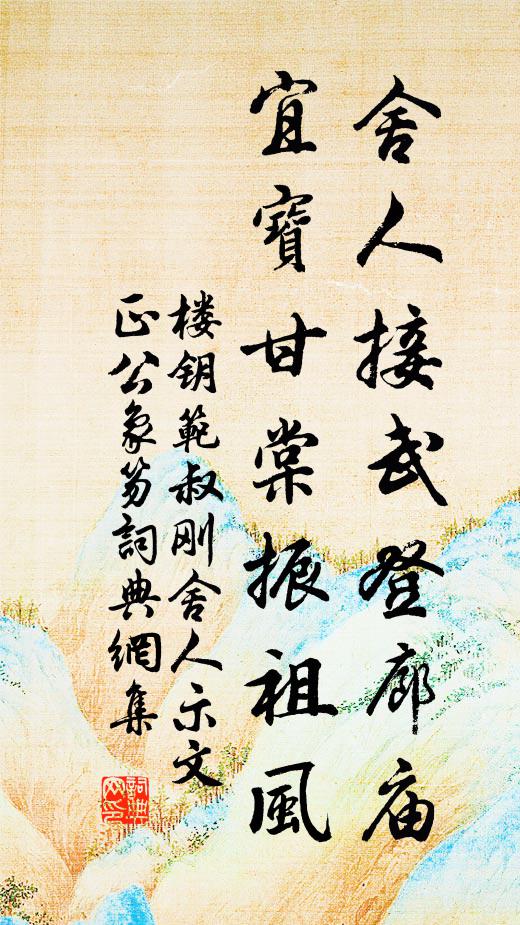 舍人接武登廊庙
宜寶甘棠振祖風
楼钥範叔刚舍人示文
正公象笏詞典網集